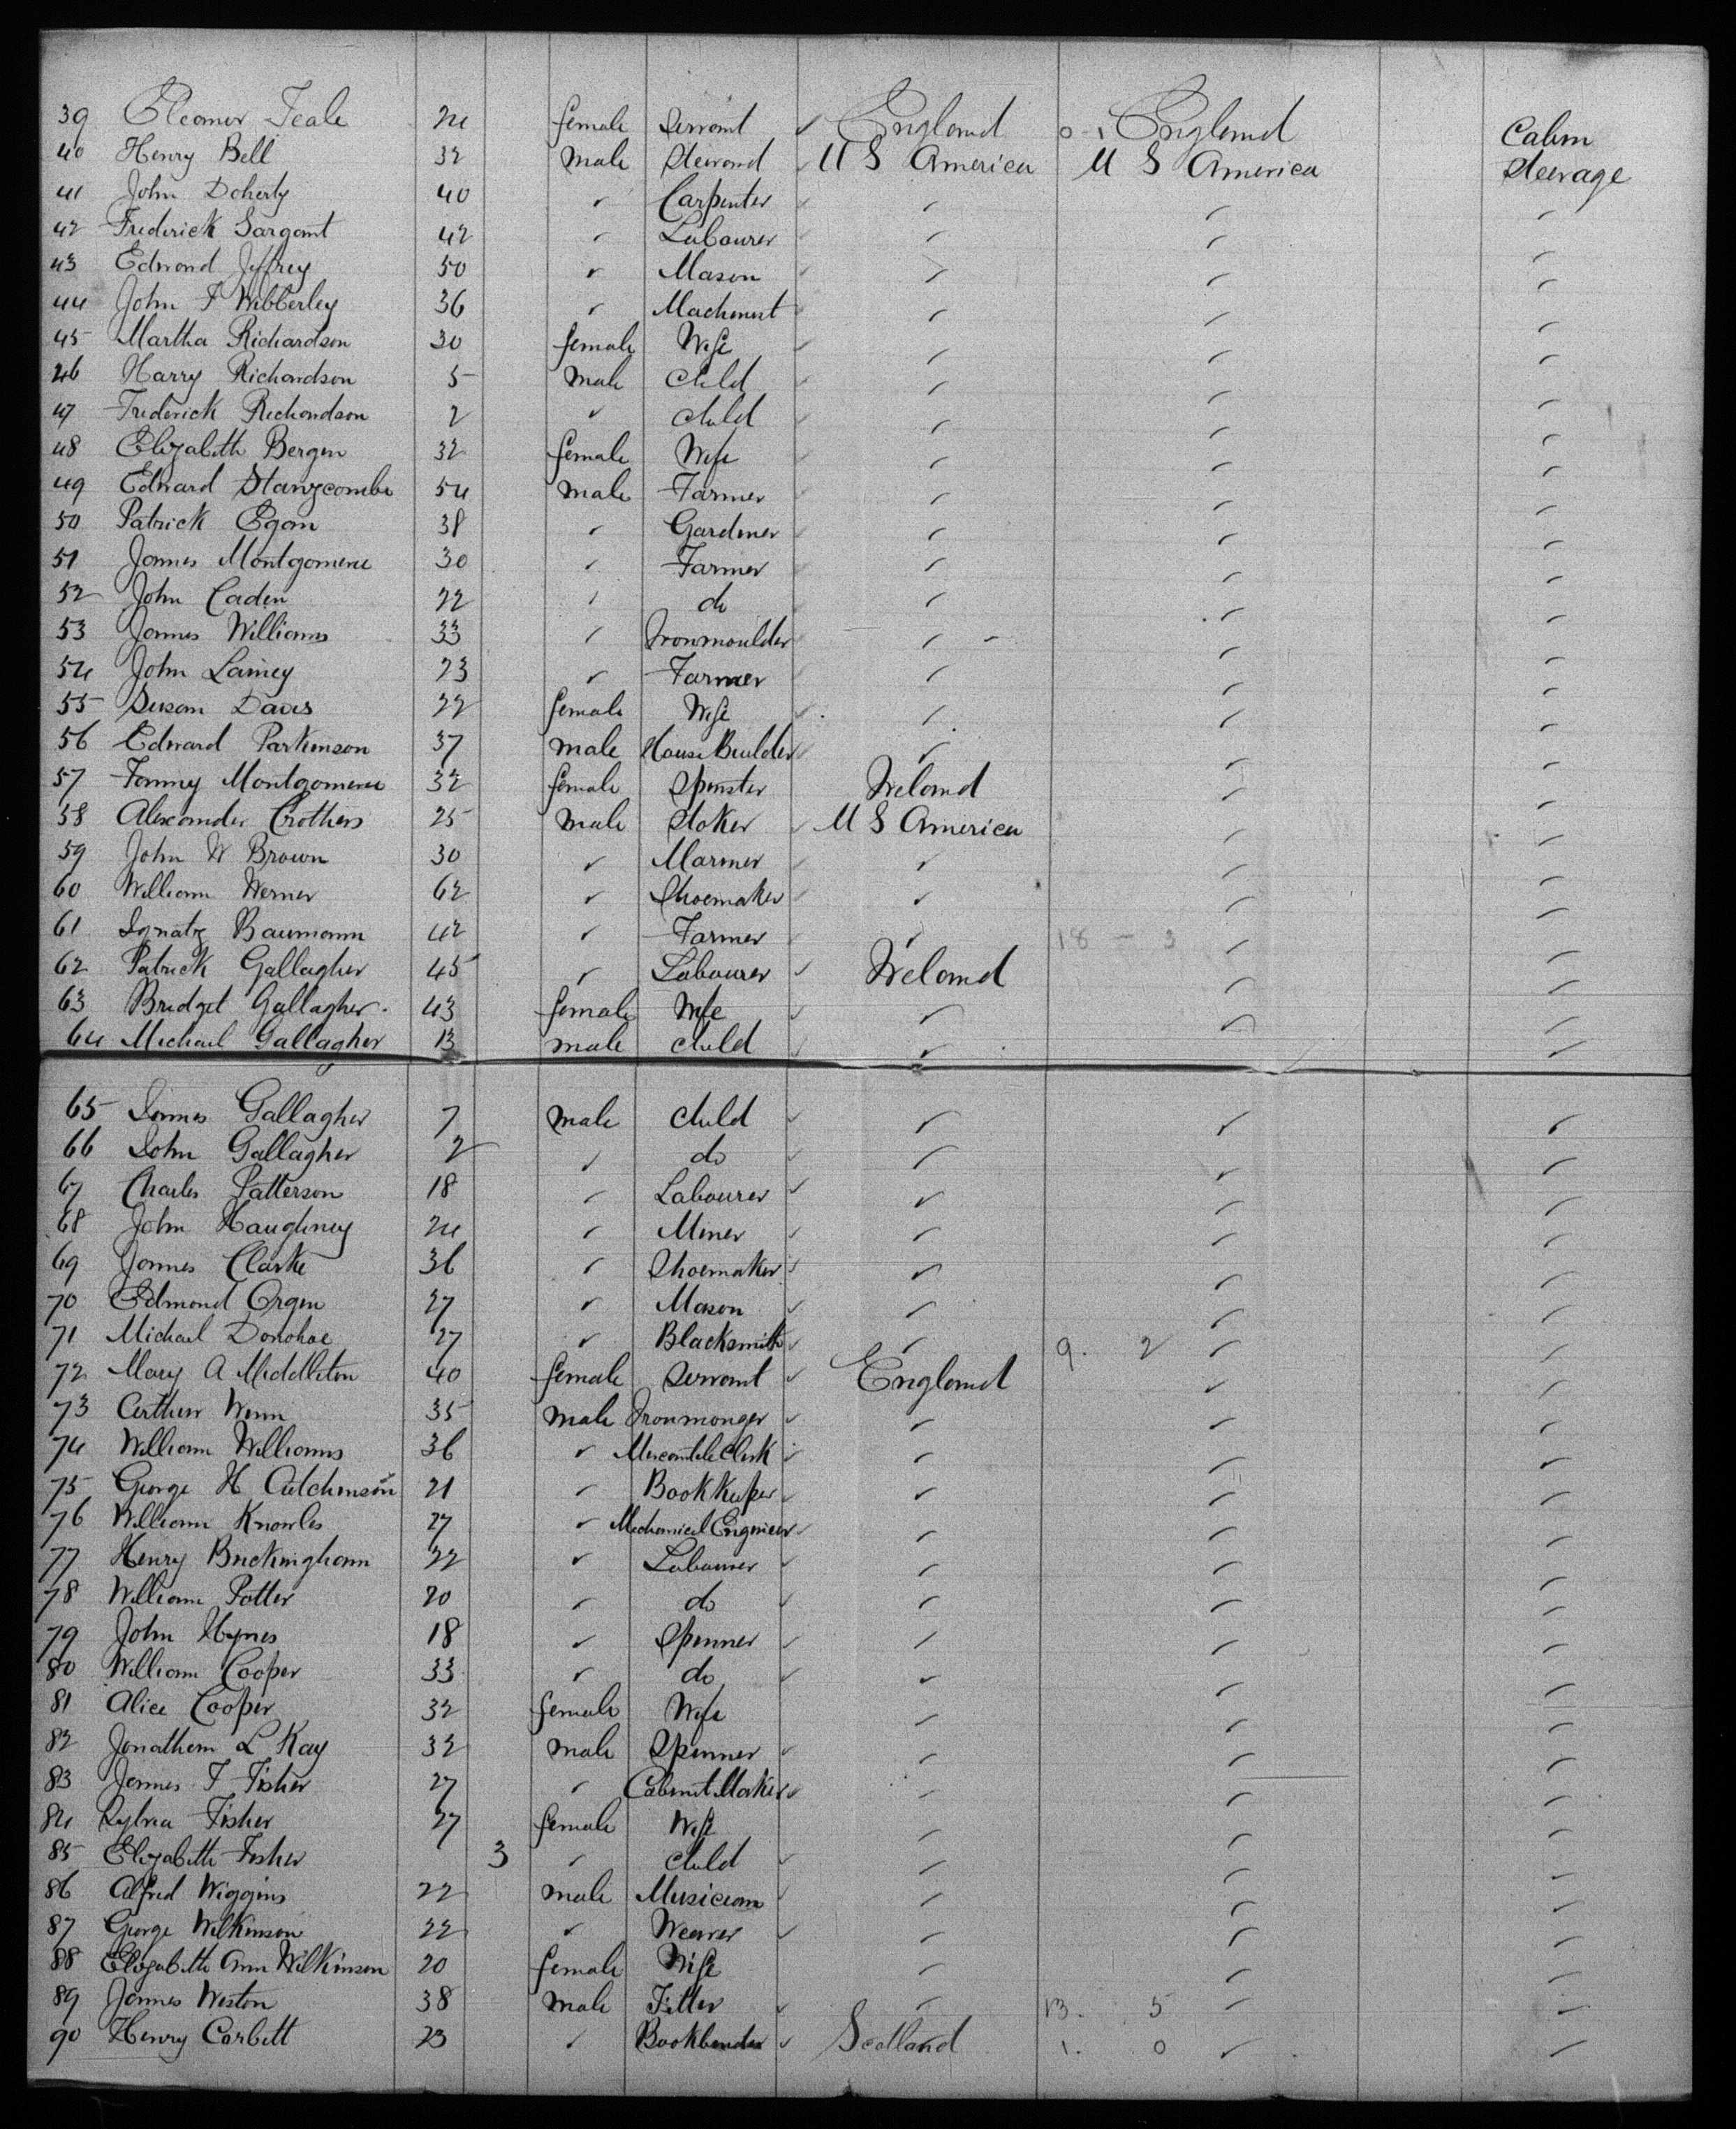 39 Eleoner Teale 24 female Servant ✓ England 0 - 1 England Cabin
40 Henry Bell 32 male Steward ✓ U S America U S America Steerage
41 John Doherty 40 ✓ Carpenter ✓ ✓ ✓ ✓
42 Frederick Sargant 42 ✓ Labourer ✓ ✓ ✓ ✓
43 Edward Jeffrey 50 ✓ Mason ✓ ✓ ✓ ✓
44 John F Wibberley 36 ✓ Machinist ✓ ✓ ✓ ✓
45 Martha Richardson 30 female Wife ✓ ✓ ✓ ✓
46 Harry Richardson 5 male Child ✓ ✓ ✓ ✓
47 Frederick Richardson 2 ✓ child ✓ ✓ ✓ ✓
48 Elizabeth Bergen 32 female Wife ✓ ✓ ✓ ✓
49 Edward Stanzcombe 54 male Farmer ✓ ✓ ✓ ✓
50 Patrick Egan 38 ✓ Gardiner ✓ ✓ ✓ ✓
51 James Montgomerie 30 ✓ Farmer ✓ ✓ ✓ ✓
52 John Caden 22 ✓ do ✓ ✓ ✓ ✓
53 James Williams 33 ✓ Ironmoulder ✓ ✓ ✓ ✓
54 John Lainey 23 ✓ Farmer ✓ ✓ ✓ ✓
55 Susan Davis 22 female Wife ✓ ✓ ✓ ✓
56 Edward Parkinson 37 male House Builder ✓ ✓ ✓ ✓
57 Fanny Montgomerie 32 female Spinster Ireland ✓ ✓
58 Alexander Crothers 25 male Stoker ✓ U S America ✓ ✓
59 John W Brown 30 ✓ Mariner ✓ ✓ ✓ ✓
60 William Werner 62 ✓ Shoemaker ✓ ✓ ✓ ✓
61 Ignatz Baumann 42 ✓ Farmer ✓ ✓ 18 - 3 ✓ ✓
62 Patrick Gallagher 45 ✓ Labourer ✓ Ireland ✓ ✓
63 Bridget Gallagher 43 female Wife ✓ ✓ ✓ ✓
64 Michael Gallagher 13 male child ✓ ✓ ✓ ✓
65 James Gallagher 7 male Child ✓ ✓ ✓ ✓
66 John Gallagher 2 ✓ do ✓ ✓ ✓ ✓
67 Charles Patterson 18 ✓ Labourer ✓ ✓ ✓ ✓
68 John Haughney 24 ✓ Miner ✓ ✓ ✓ ✓
69 James Clarke 36 ✓ Shoemaker ✓ ✓ ✓ ✓
70 Edmond Orgen 27 ✓ Mason ✓ ✓ ✓ ✓
71 Michael Donohoe 27 ✓ Blacksmith ✓ ✓ 9. 2 ✓ ✓
72 Mary A Middleton 40 female Servant ✓ England ✓ ✓
73 Arthur Winn 35 male Ironmonger ✓ ✓ ✓ ✓
74 William Williams 36 ✓ Mercantile Clerk ✓ ✓ ✓ ✓
75 George H Cutchinson 21 ✓ Book Keeper ✓ ✓ ✓ ✓
76 William Knowles 27 ✓ Mechanical Engineer ✓ ✓ ✓ ✓
77 Henry Buckingham 22 ✓ Labourer ✓ ✓ ✓ ✓
78 William Potter 20 ✓ do ✓ ✓ ✓ ✓
79 John Hynes 18 ✓ Spinner ✓ ✓ ✓ ✓
80 William Cooper 33 ✓ do ✓ ✓ ✓ ✓
81 Alice Cooper 32 female Wife ✓ ✓ ✓
82 Jonathan L Kay 32 male Spinner ✓ ✓ ✓ ✓
83 James T Fisher 27 ✓ Cabinet Maker ✓ ✓ ✓ ✓
84 Sylvia Fisher 27 female Wife ✓ ✓ ✓
85 Elizabeth Fisher 3 ✓ child ✓ ✓ ✓ ✓
86 Alfred Wiggins 22 male Musician ✓ ✓ ✓ ✓
87 George Wilkinson 22 ✓ Weaver ✓ ✓ ✓ ✓
88 Elizabeth Ann Wilkinson 20 female Wife ✓ ✓ ✓
89 James Weston 38 male Fitter ✓ ✓ 13. 5 ✓ ✓
90 Henry Corbett 23 ✓ Bookbinder ✓ Scotland 1. 0 ✓ ✓